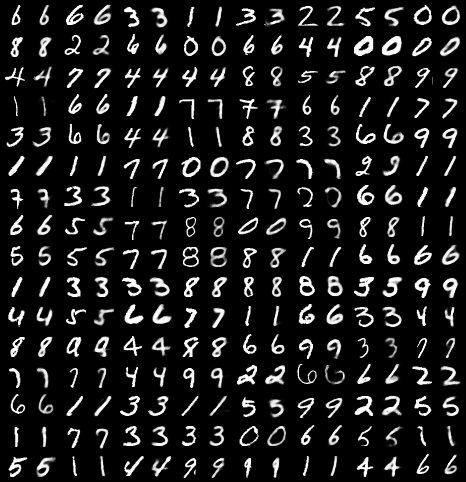 6 6 6 6 3 3 1 1 3 3 2 2 5 5 0 0
8 8 2 2 6 6 0 0 6 6 4 4 0 0 0 0
4 4 7 7 4 4 4 4 8 8 5 5 8 8 9 9
1 1 6 6 1 1 7 7 7 7 6 6 1 1 7 7
3 3 6 6 4 4 1 1 8 8 3 3 6 6 9 9
1 1 1 1 7 7 0 0 7 7 7 7 2 9 1 1
7 7 3 3 1 1 3 3 7 7 2 0 6 6 1 1
6 6 5 5 7 7 8 8 0 0 9 9 8 8 1 1
5 5 5 5 7 7 8 8 8 8 1 1 6 6 6 6
1 1 3 3 3 3 8 8 8 8 8 8 3 5 9 9
4 4 5 5 6 6 7 7 1 1 6 6 3 3 4 4
8 8 9 9 4 4 8 8 6 6 9 9 3 3 7 7
7 7 7 7 4 4 9 9 2 2 6 6 6 6 2 2
6 6 1 1 3 3 1 1 5 5 9 9 2 2 5 5
1 1 7 7 3 3 3 3 0 0 6 6 5 5 1 1
5 5 1 1 4 4 9 9 9 9 1 1 4 4 6 6